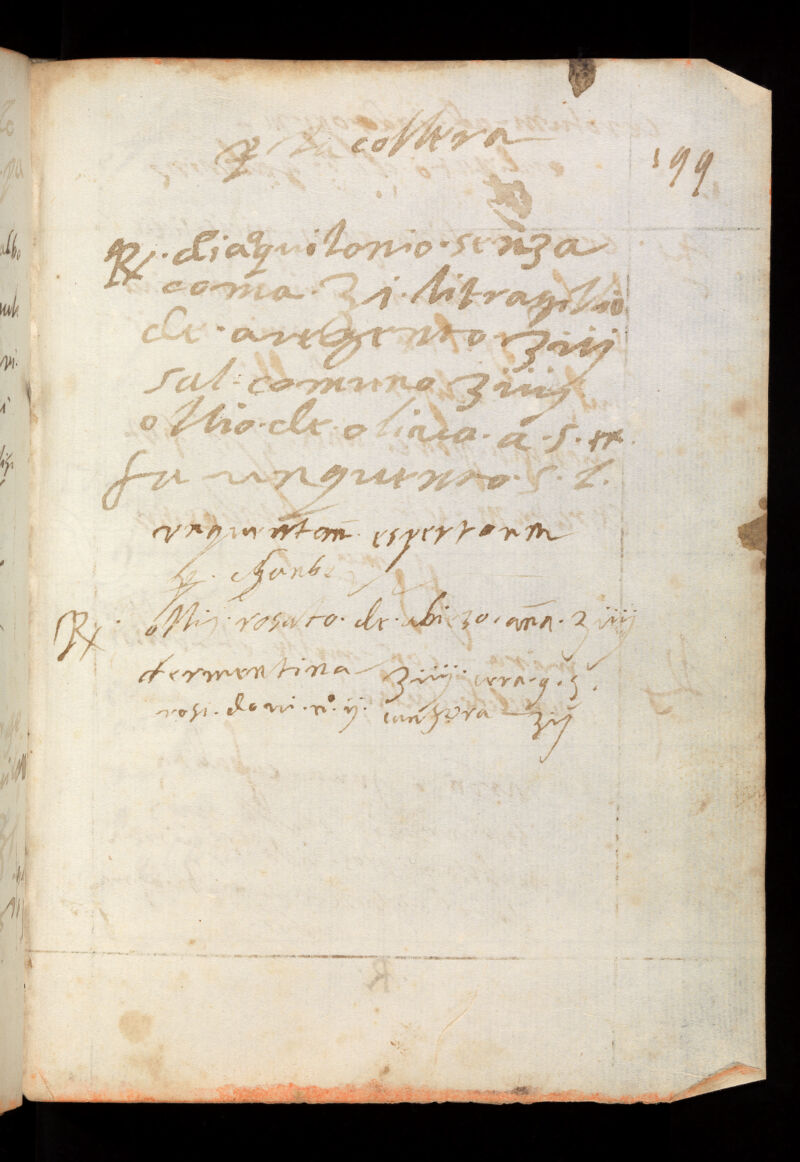 ꝑ la collera
199
℞. diaquilonio. senza
goma. ʒ i. litragilio
de. argento ʒ iiij
sal. comuno ʒ iiij
ollio. de. oliva. a. s.
fa unguento. s. l.
unguentam espertonem
ꝑ. ganbe
℞. ollij. rosato. de. abiezo. ana. ʒ iiij
termentina ʒ iiij. cera. q. s.
rosi. de ovi. nº. ij. canfora ʒ ij